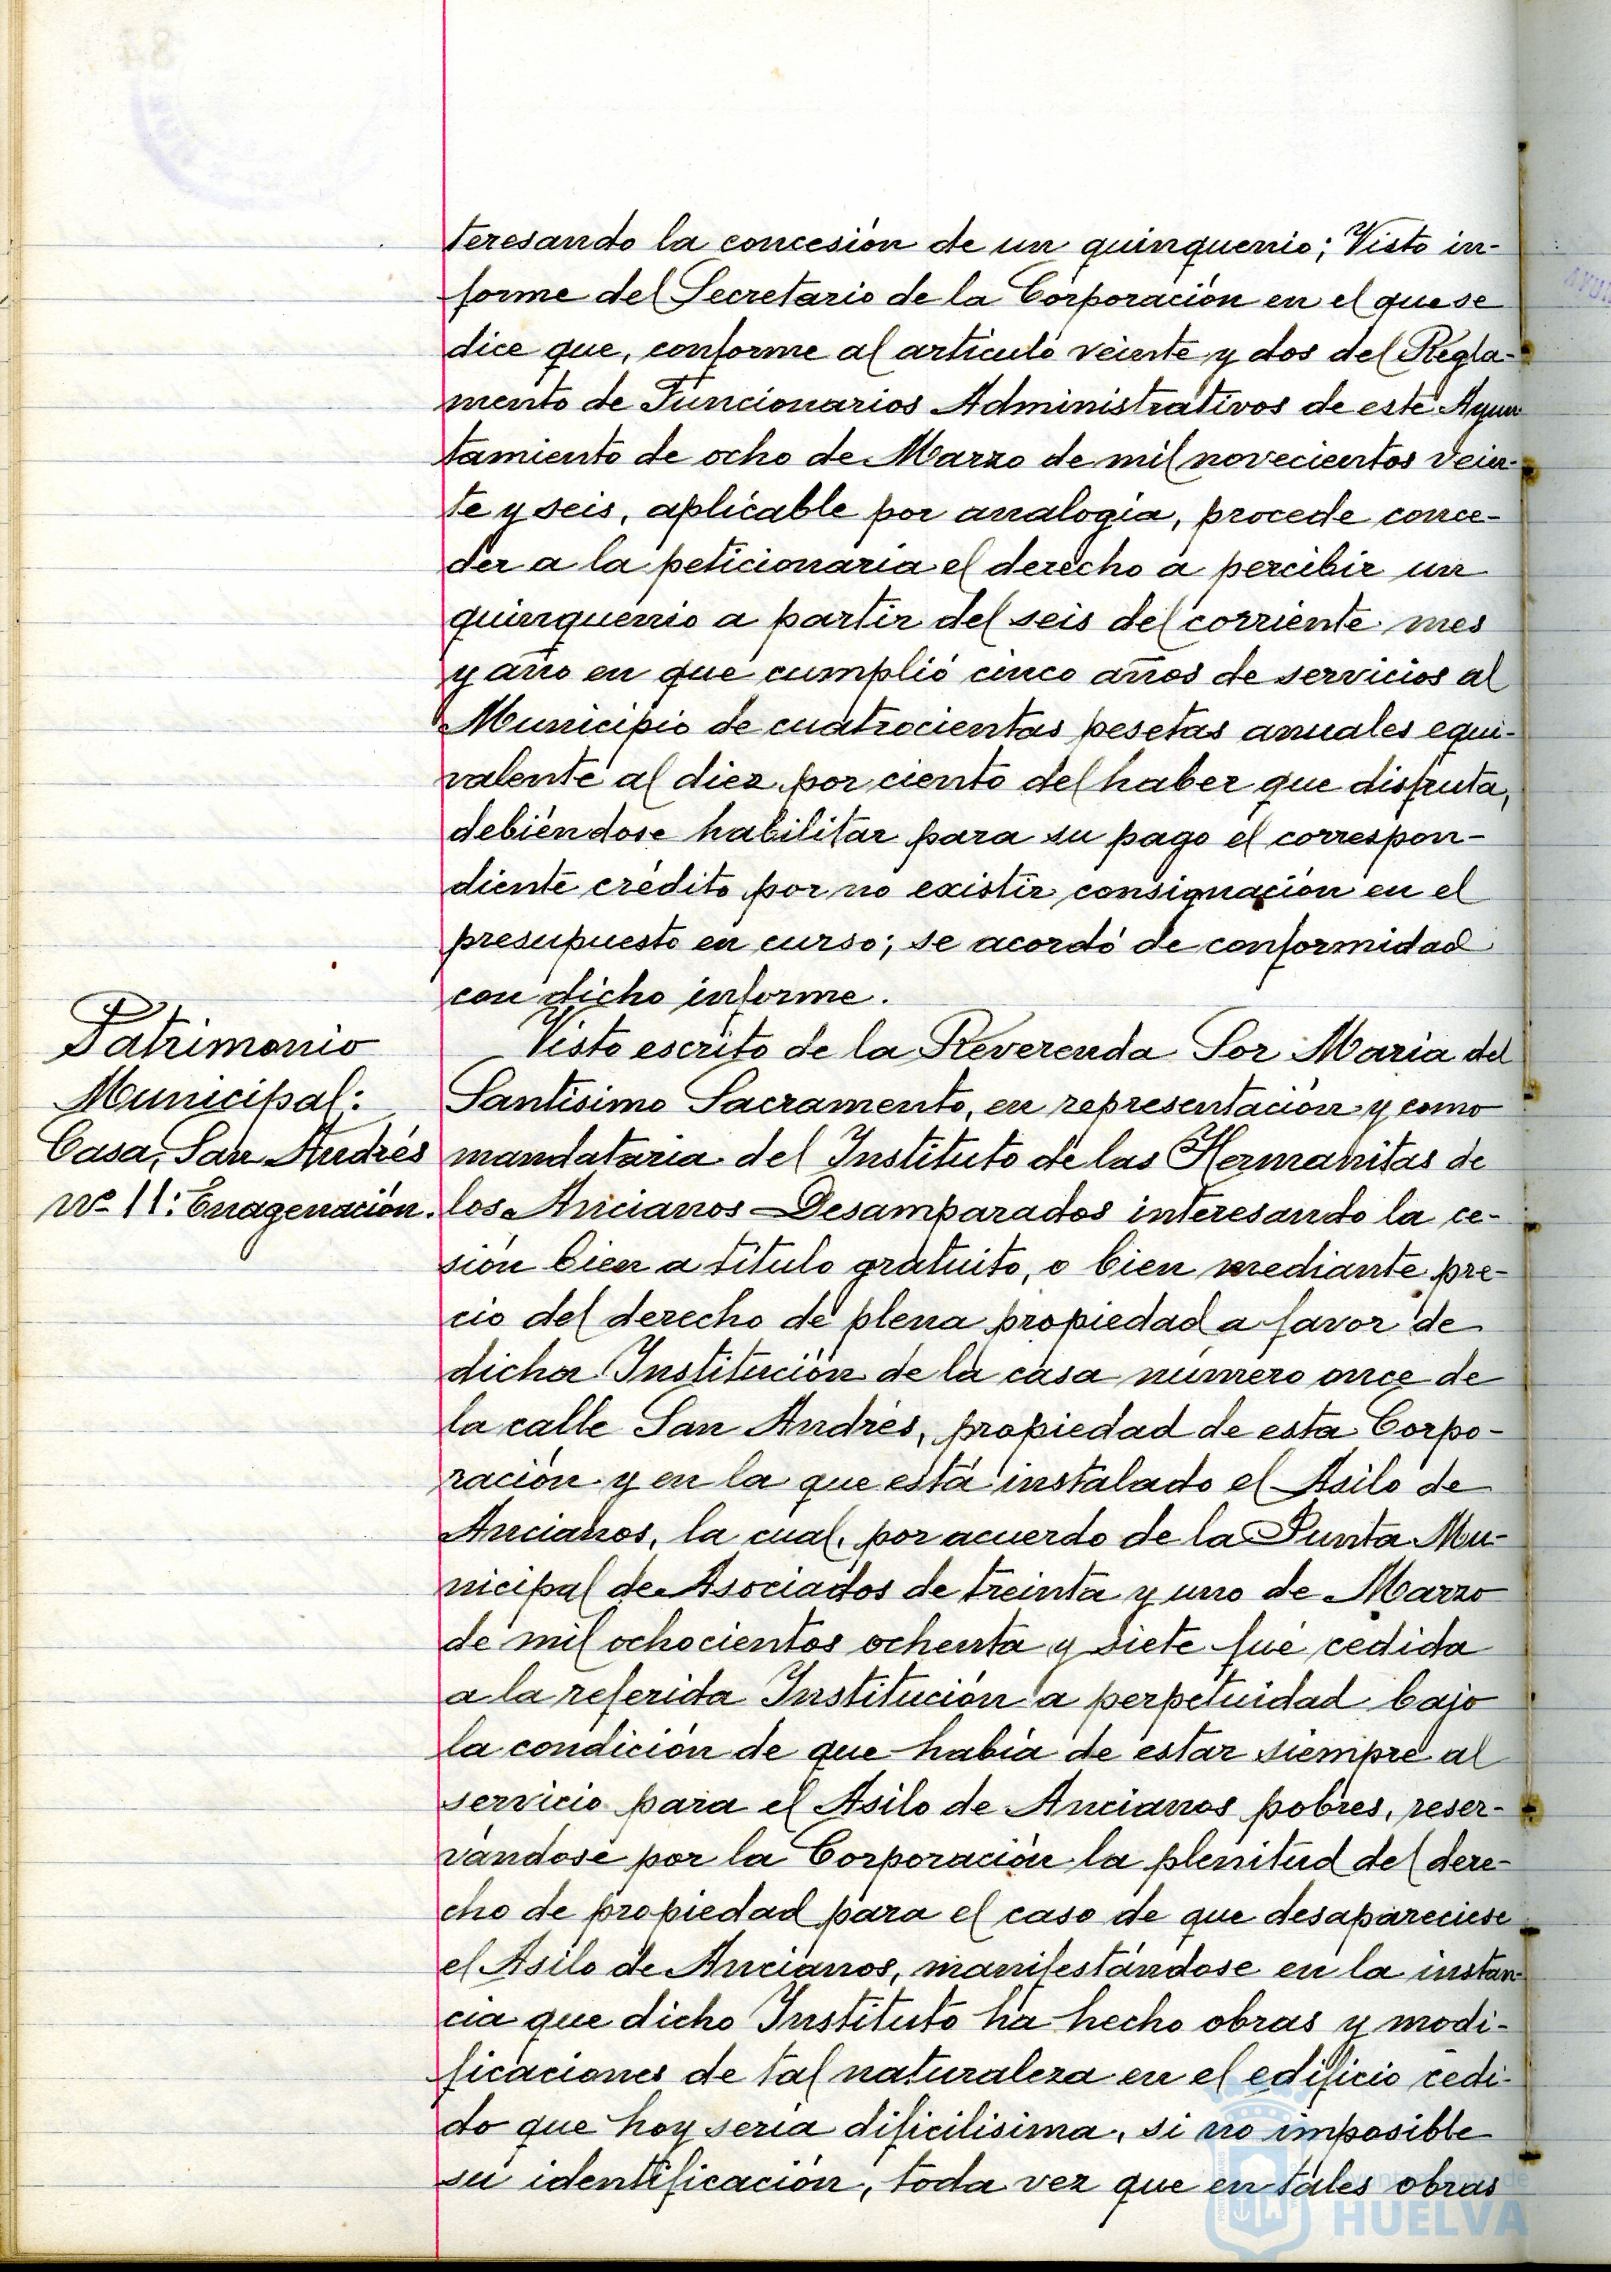 teresando la concesión de un quinquenio; Visto in-
forme del Secretario de la Corporación en el que se
dice que, conforme al artículo veinte y dos del Regla-
mento de Funcionarios Administrativos de este Ayun
tamiento de ocho de Marzo de mil novecientos vein-
te y seis, aplicable por analogía, procede conce-
der a la peticionaria el derecho a percibir un
quinquenio a partir del seis del corriente mes
y año en que cumplió cinco años de servicios al
Municipio de cuatrocientas pesetas anuales equi-
valente al diez por ciento del haber que disfruta,
debiéndose habilitar para su pago el correspon-
diente crédito por no existir consignación en el
presupuesto en curso; se acordó de conformidad
con dicho informe.
Patrimonio
Municipal:
Casa, San Andrés
nº 11: Enagenación.
Visto escrito de la Reverenda Sor María del
Santísimo Sacramento, en representación y como
mandataria del Instituto de las Hermanitas de
los Ancianos Desamparados interesando la ce-
sión bien a título gratuito, o bien mediante pre-
cio del derecho de plena propiedad a favor de
dicha Institución de la casa número once de
la calle San Andrés, propiedad de esta Corpo-
ración y en la que está instalado el Asilo de
Ancianos, la cual, por acuerdo de la Junta Mu-
nicipal de Asociados de treinta y uno de Marzo
de mil ochocientos ochenta y siete fué cedida
a la referida Institución a perpetuidad bajo
la condición de que había de estar siempre al
servicio para el Asilo de Ancianos pobres, reser-
vándose por la Corporación la plenitud del dere-
cho de propiedad para el caso de que desapareciese
el Asilo de Ancianos, manifestándose en la instan-
cia que dicho Instituto ha hecho obras y modi-
ficaciones de tal naturaleza en el edificio cedi-
do que hoy sería dificilísima, si no imposible
su identificación, toda vez que en tales obras
Ayuntamiento de
HUELVA